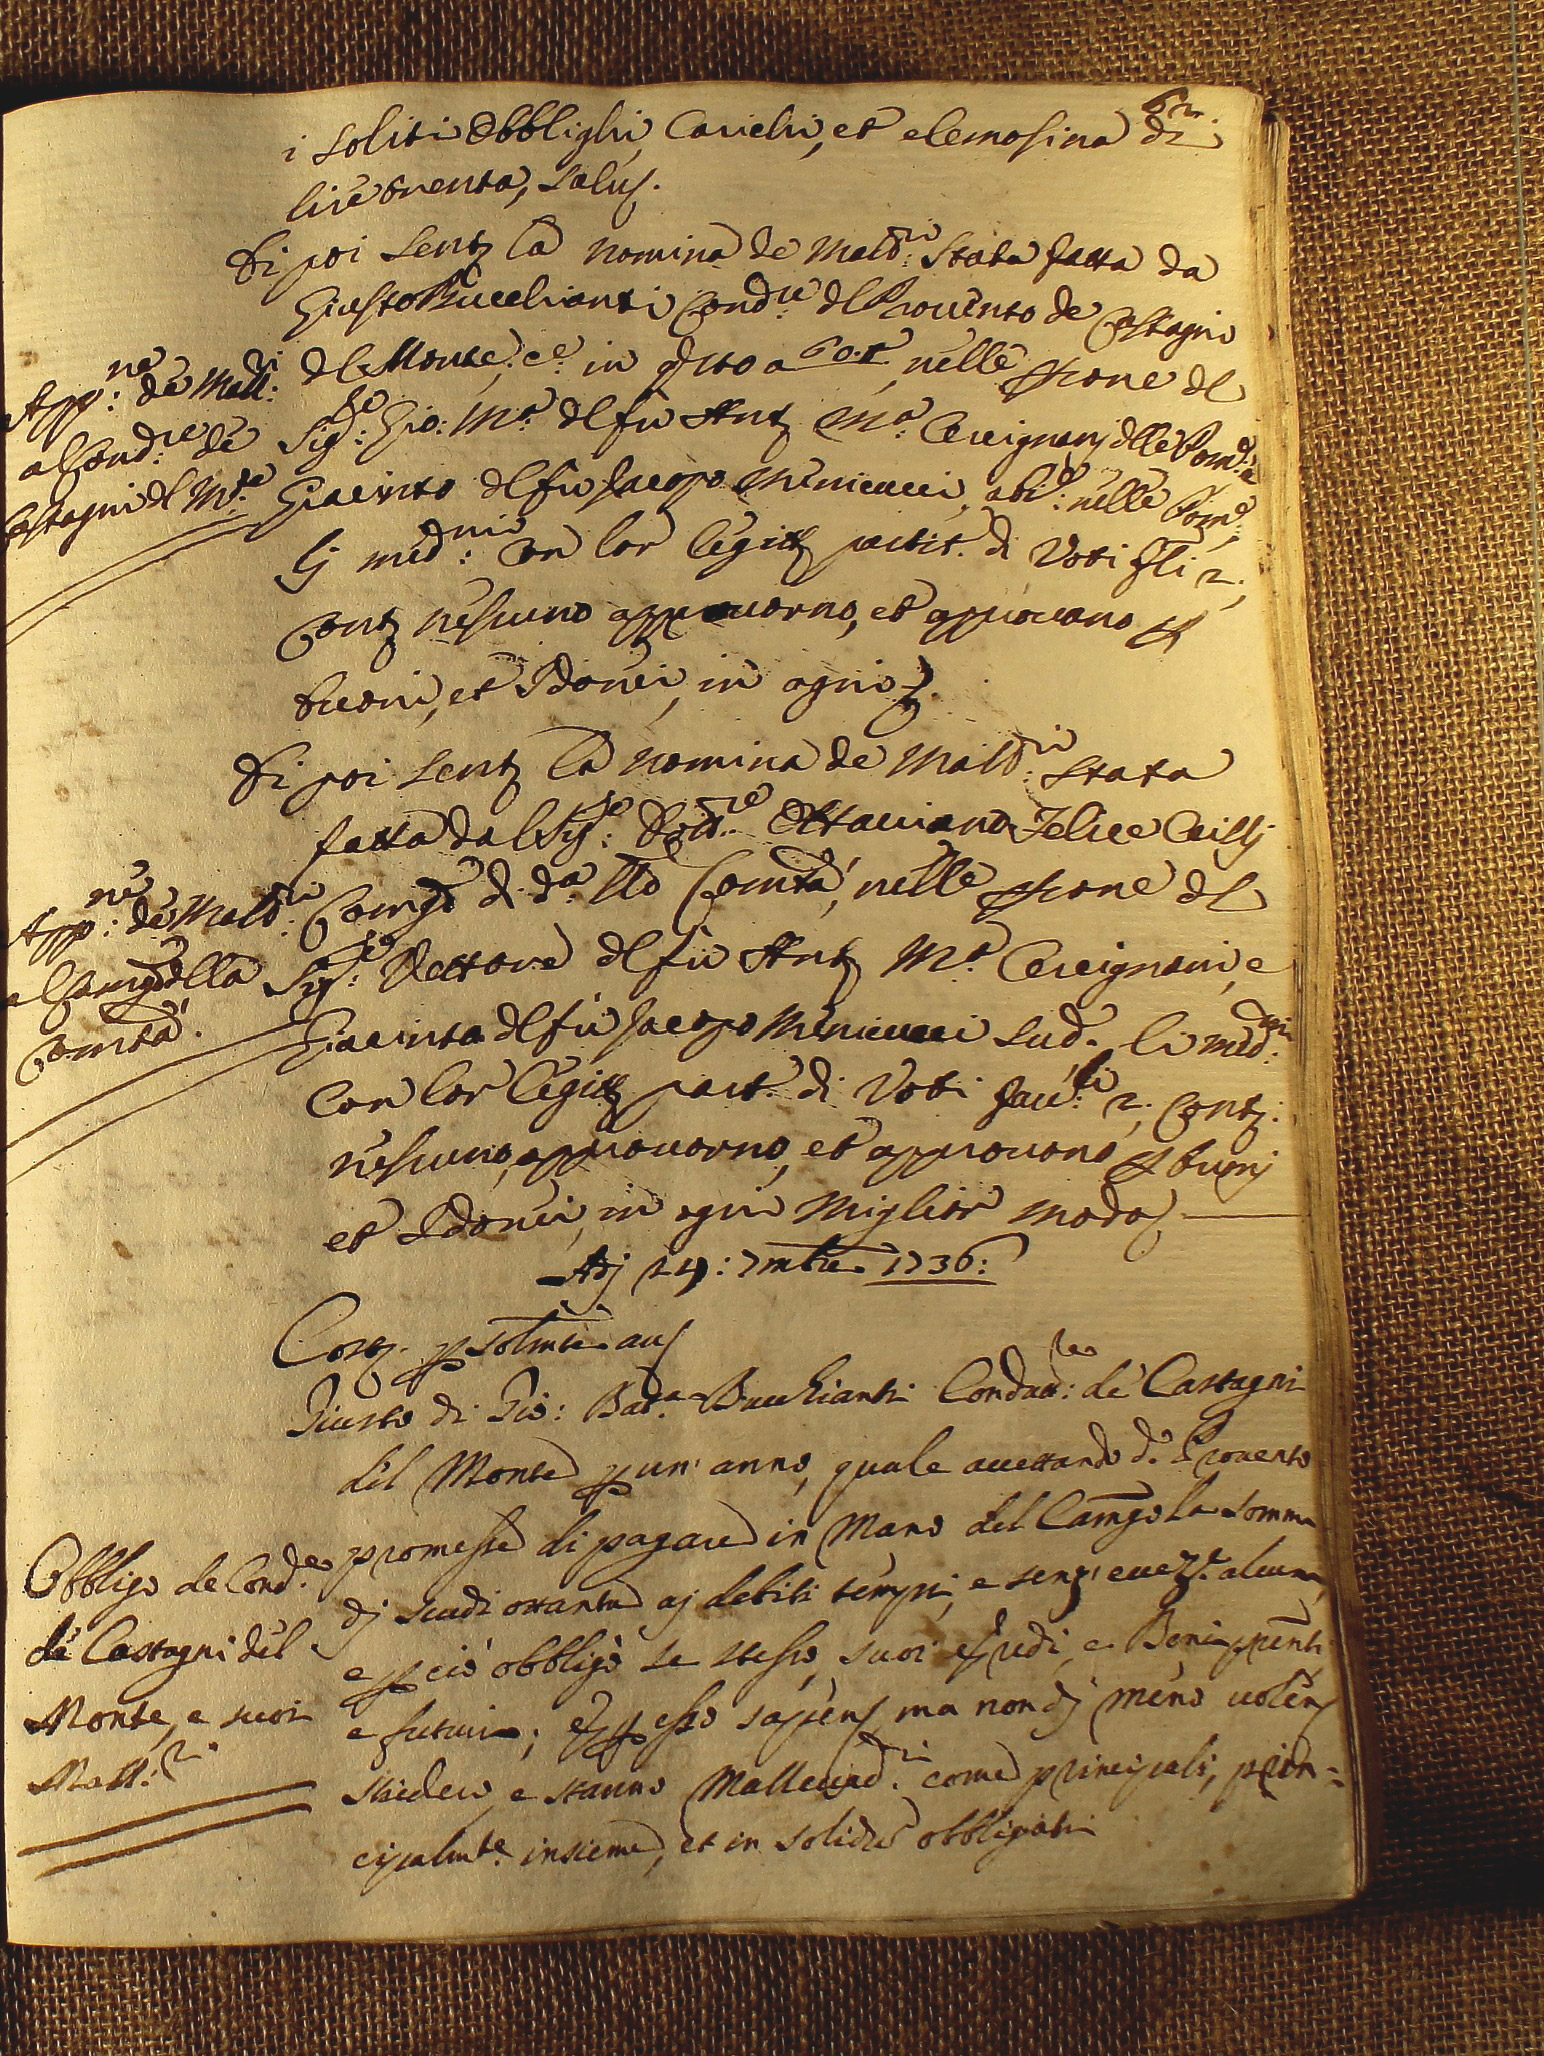 62.
i soliti Obblighi, Carichi, et elemosina di
lire trenta, salus.
Di poi sent. la nomina de Mald:ri Stata fatta da
Giusto Bucchianti Cond:re del Provento de Castagni
del Monte, e.º in qsto a 60.t nelle psone del
Sig:re Gio: M.a del fù Ant. M.a Cercignanj delle Pom.e e
Giacinto del fù Jacopo Minicucci, abi: nelle Pom.e
lj med:mi con lor legitt. partit. di Voti fli 2.
cont. nessuno approvorno, et approvano p
buoni, et Idonei, in ogni
App:ne de Mall:ri
al Cond:re de
Castagni del M.te
Di poi sent. la nomina de Mald:ri stata
fatta dal Sig:re Dott:re Ottaviano Felice
Camg.o di d.a llo Comtà, nelle psone del
Sig:re Vettore del fù Ant. M.a Cercignani, e
Giacinto del fù Jacopo Minicucci sud. li med:mi
con lor legitt. part. di Voti fav:li 2. cont.
nessuno, approvorno, et approvono p buonj
et Idonei, in ogni miglior modo
App:ne de Mald:ri
al Camg.o della
Comtà.
Adj 24: 7mbre 1736:
Cost. p
Giusto di Gio: Bat.a Bucchianti Condutt:re de' Castagni
del Monte p un' anno, quale accettando d.o Provento
promesse di pagare in Mano del Camg.o la somma
dj scudi ottanta aj debiti tempi, e senz' ecceze. alcuna,
e p ciò obbligò se stesso, suoi eredi, e Beni pnti
e futuri; e p esso sapiens ma non dj meno volens
stiedero, e stanno Mallevad:ri come principali, prin=
cipalmte. insieme, et in solidù obbligati
Obbligo de Cond.re
de Castagni del
Monte, e suoi
Mall:ri